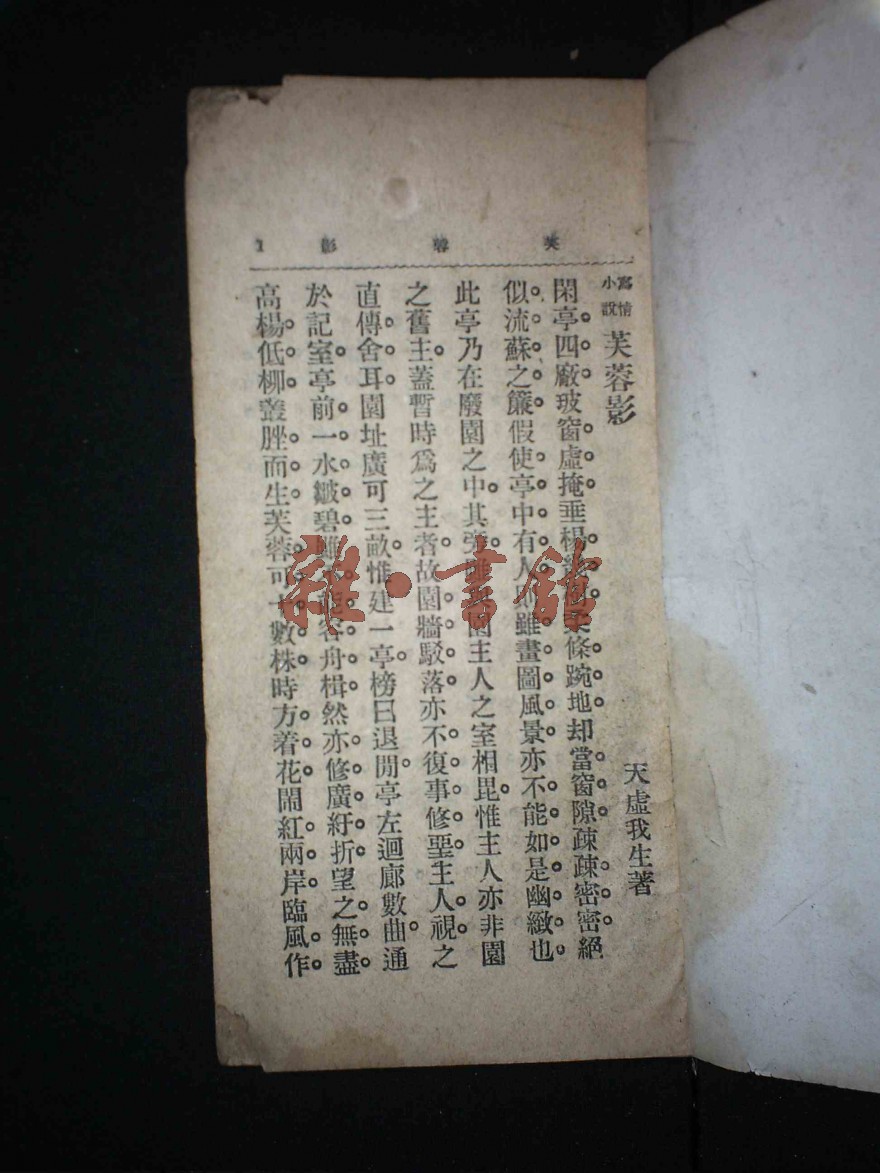 芙蓉影 1
寫情小説 芙蓉影
天虛我生著
閑亭四厰玻窗虛掩垂楊 樹柔條踠地却當窗隙疎疎密密絕
似流蘇之簾假使亭中有人則雖畫圖風景亦不能如是幽緻也
此亭乃在廢園之中其旁雖與園主人之室相毘惟主人亦非園
之舊主蓋暫時爲之主者故園牆駁落亦不復事修堊主人視之
直傳舍耳園址廣可三畝惟建一亭榜曰退閒亭左迴廊數曲通
於記室亭前一水皺碧雖不能容舟楫然亦修廣紆折望之無盡
高楊低柳叢脞而生芙蓉可十數株時方着花鬧紅兩岸臨風作
雜·書館